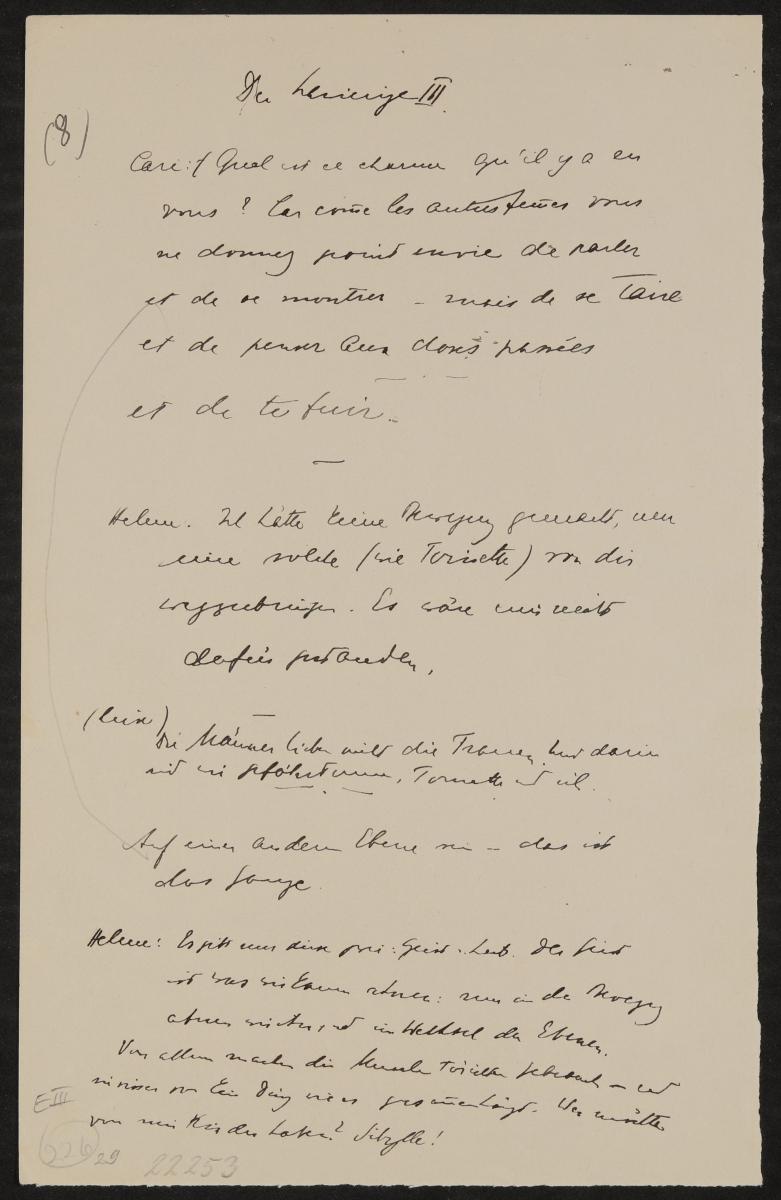 Der Schwierige III
(8)
Cari: / Quel est ce charme qu'il y a en
vous? Car com̄e les autres fem̄es vous
ne donnez point envie de parler
et de se montrer – mais de se taire
et de penser aux choses passées
et de te fuir. –
Helene. Ich hätte keine Bewegung gemacht, um
eine solche (wie Toinette) von dir
wegzubringen. Es wäre mir nicht
dafür gestanden.
(leise)
Die Männer lieben nicht die Frauen. Und darin
sind wir gefährtinnen, Toinette und ich.
Auf einer anderen Ebene sein – das ist
das Ganze.
Helene: Es gibt nur diese zwei: Geist u. Leib. Der Geist
ist was wir kaum ahnen: nur in der Bewegung
ahnen wir ihn, und im Wechsel der Ebenen.
Vor allem machen die Menschen Gebrauch – und
wissen von Ein Ding wie es zusam̄enhängt. Wer möchte
von mir Kinder haben? Sibylle!
E III
226
29
22253